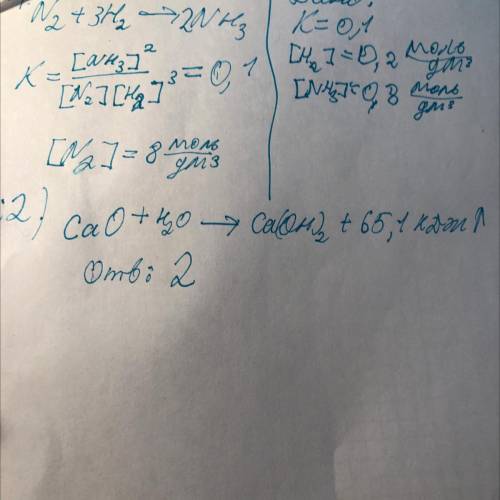 N₂ + 3H₂ → 2NH₃
K = [NH₃]² / [N₂][H₂]³ = 0,1
[N₂] = 8 моль/дм³
K = 0,1
[H₂] = 0,2 моль/дм³
[NH₃] = 0,8 моль/дм³
2) CaO + H₂O → Ca(OH)₂ + 65,1 кДж ↑
Отв: 2